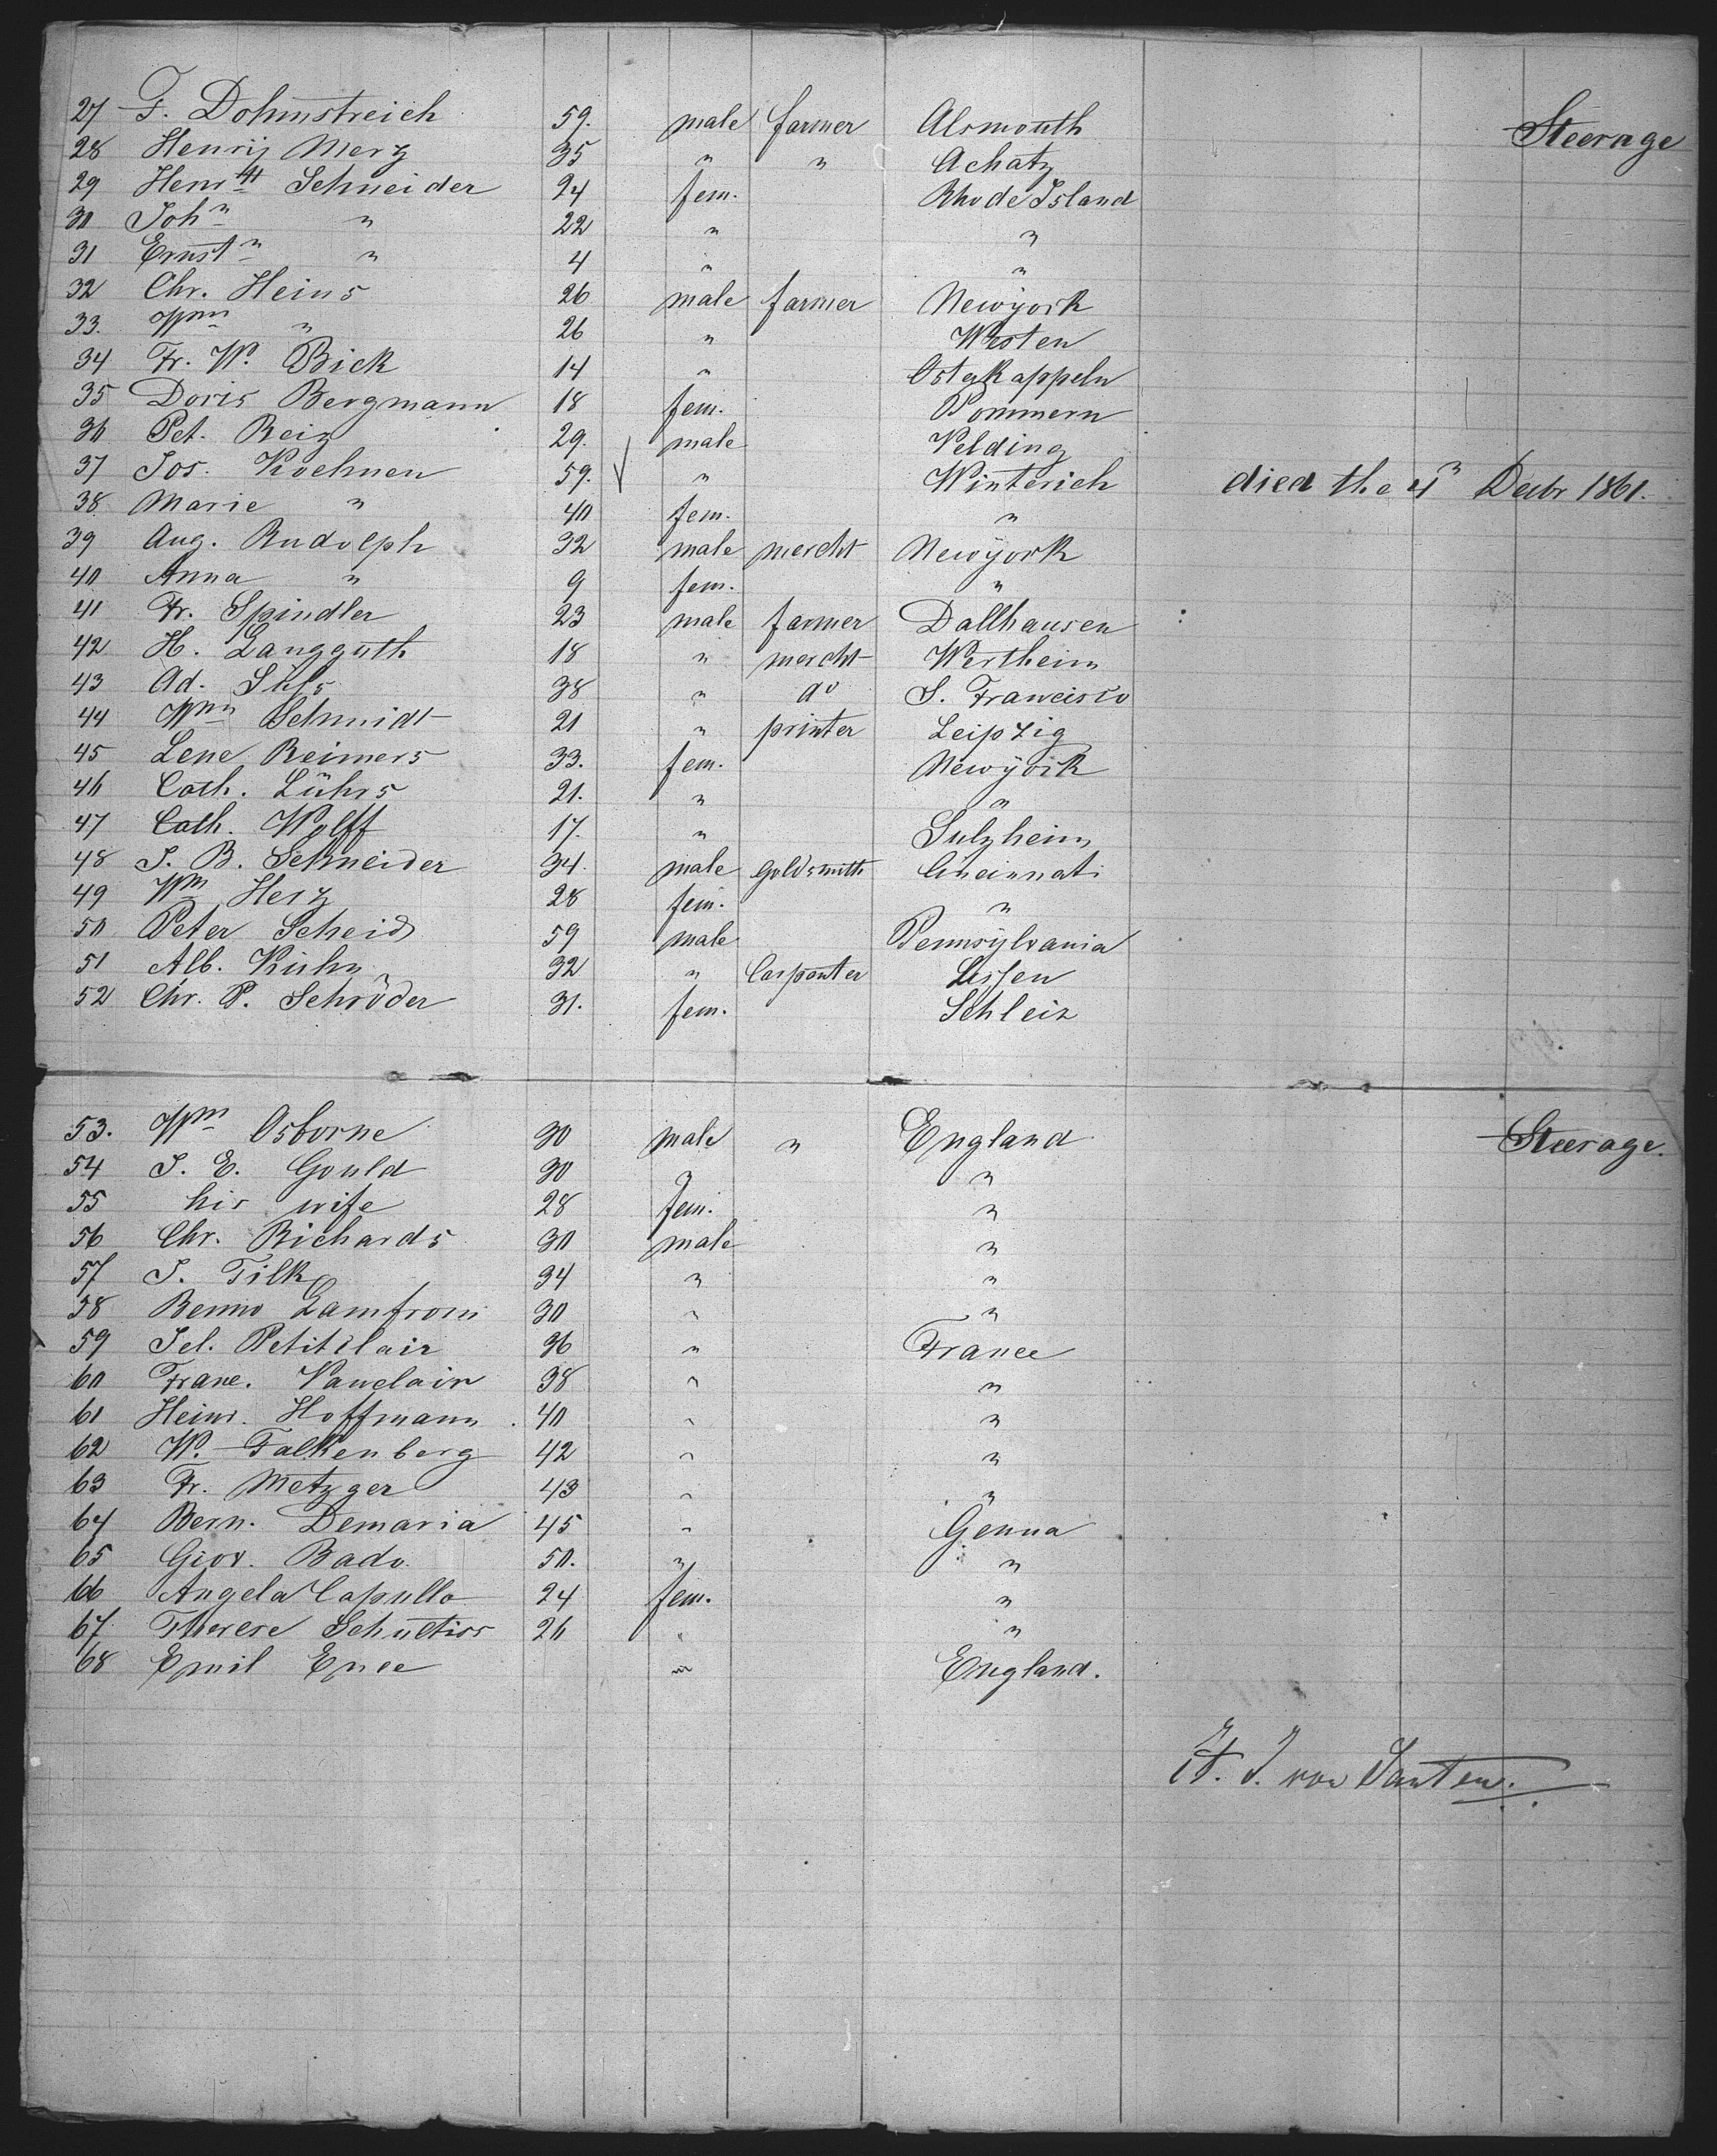 27 F. Dohmstreich 59. male farmer Alsmouth Steerage
28 Henrÿ Merz 35 " " Achatz
29 Henrtt Schneider 24 fem. Rhode Island
30 John " 22 " "
31 Ernstn " 4 " "
32 Chr. Heins 26 male farmer Newÿork
33. Wm " 26 " Westen
34 Fr. W. Bick 14 " Osterkappeln
35 Doris Bergmann 18 fem. Pommern
36 Pet. Reiz 29. male Velding
37 Jos. Koehnen 59. " Winterich died the 4" Decbr 1861.
38 Marie " 40 fem. "
39 Aug. Rudolph 32 male mercht Newÿork
40 Anna " 9 fem. "
41 Fr. Spindler 23 male farmer Dallhausen
42 H. Langguth 18 " mercht Wertheim
43 Ad. 38 " do S. Francisco
44 Wm Schmidt 21 " printer Leipzig
45 Lene Reimers 33. fem. Newÿork
46 Cath. Lührs 21. " "
47 Cath. Wolff 17. " Sulzheim
48 J. B. Schneider 34. male goldsmith Cincinnati
49 Wm Herz 28 fem. "
50 Peter Scheid 59 male Pennsÿlvania
51 Alb. Kuhn 32 " Carpenter Lissen
52 Chr. P. Schröder 31. fem. Schleiz
53. Wm Osborne 30 male " England Steerage.
54 J. E. Gould 30 " "
55 his wife 28 fem. "
56 Chr. Richards 30 male "
57 J. Tilk 34 " "
58 Benno Lamfrom 30 " "
59 Jel. Petitclair 36 " France
60 Franc. Vauclair 38 " "
61 Heinr. Hoffmann 40 " "
62 W. Falkenberg 42 " "
63 Fr. Metzger 43 " "
64 Bern. Demaria 45 " Genua
65 Giov. Bado. 50. " "
66 Angela Capullo 24 fem. "
67 Therese Schultiss 26 " "
68 Emil Enee " England.
J. von Santen.